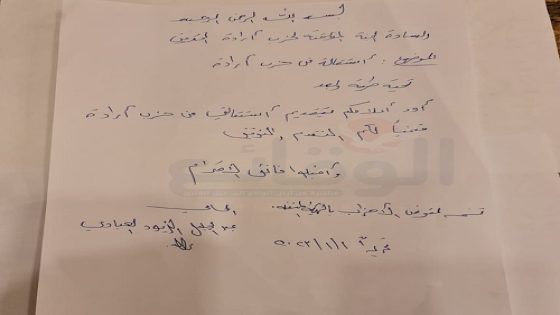 بسم الله الرحمن الرحيم
السادة الهيئة المؤقتة لحزب إرادة المحترمين
الموضوع : استقالة من حزب إرادة
تحية طيبة وبعد
أود إبلاغكم بتقديم استقالتي من حزب إرادة
متمنياً لكم التقدم والتوفيق
واقبلوا فائق الاحترام
الوقائع
نسخة لمفوض الأحزاب بالهيئة المستقلة. المحامي
عبد الزيود العبادي
تحريراً ٢٠٢٢/١/١